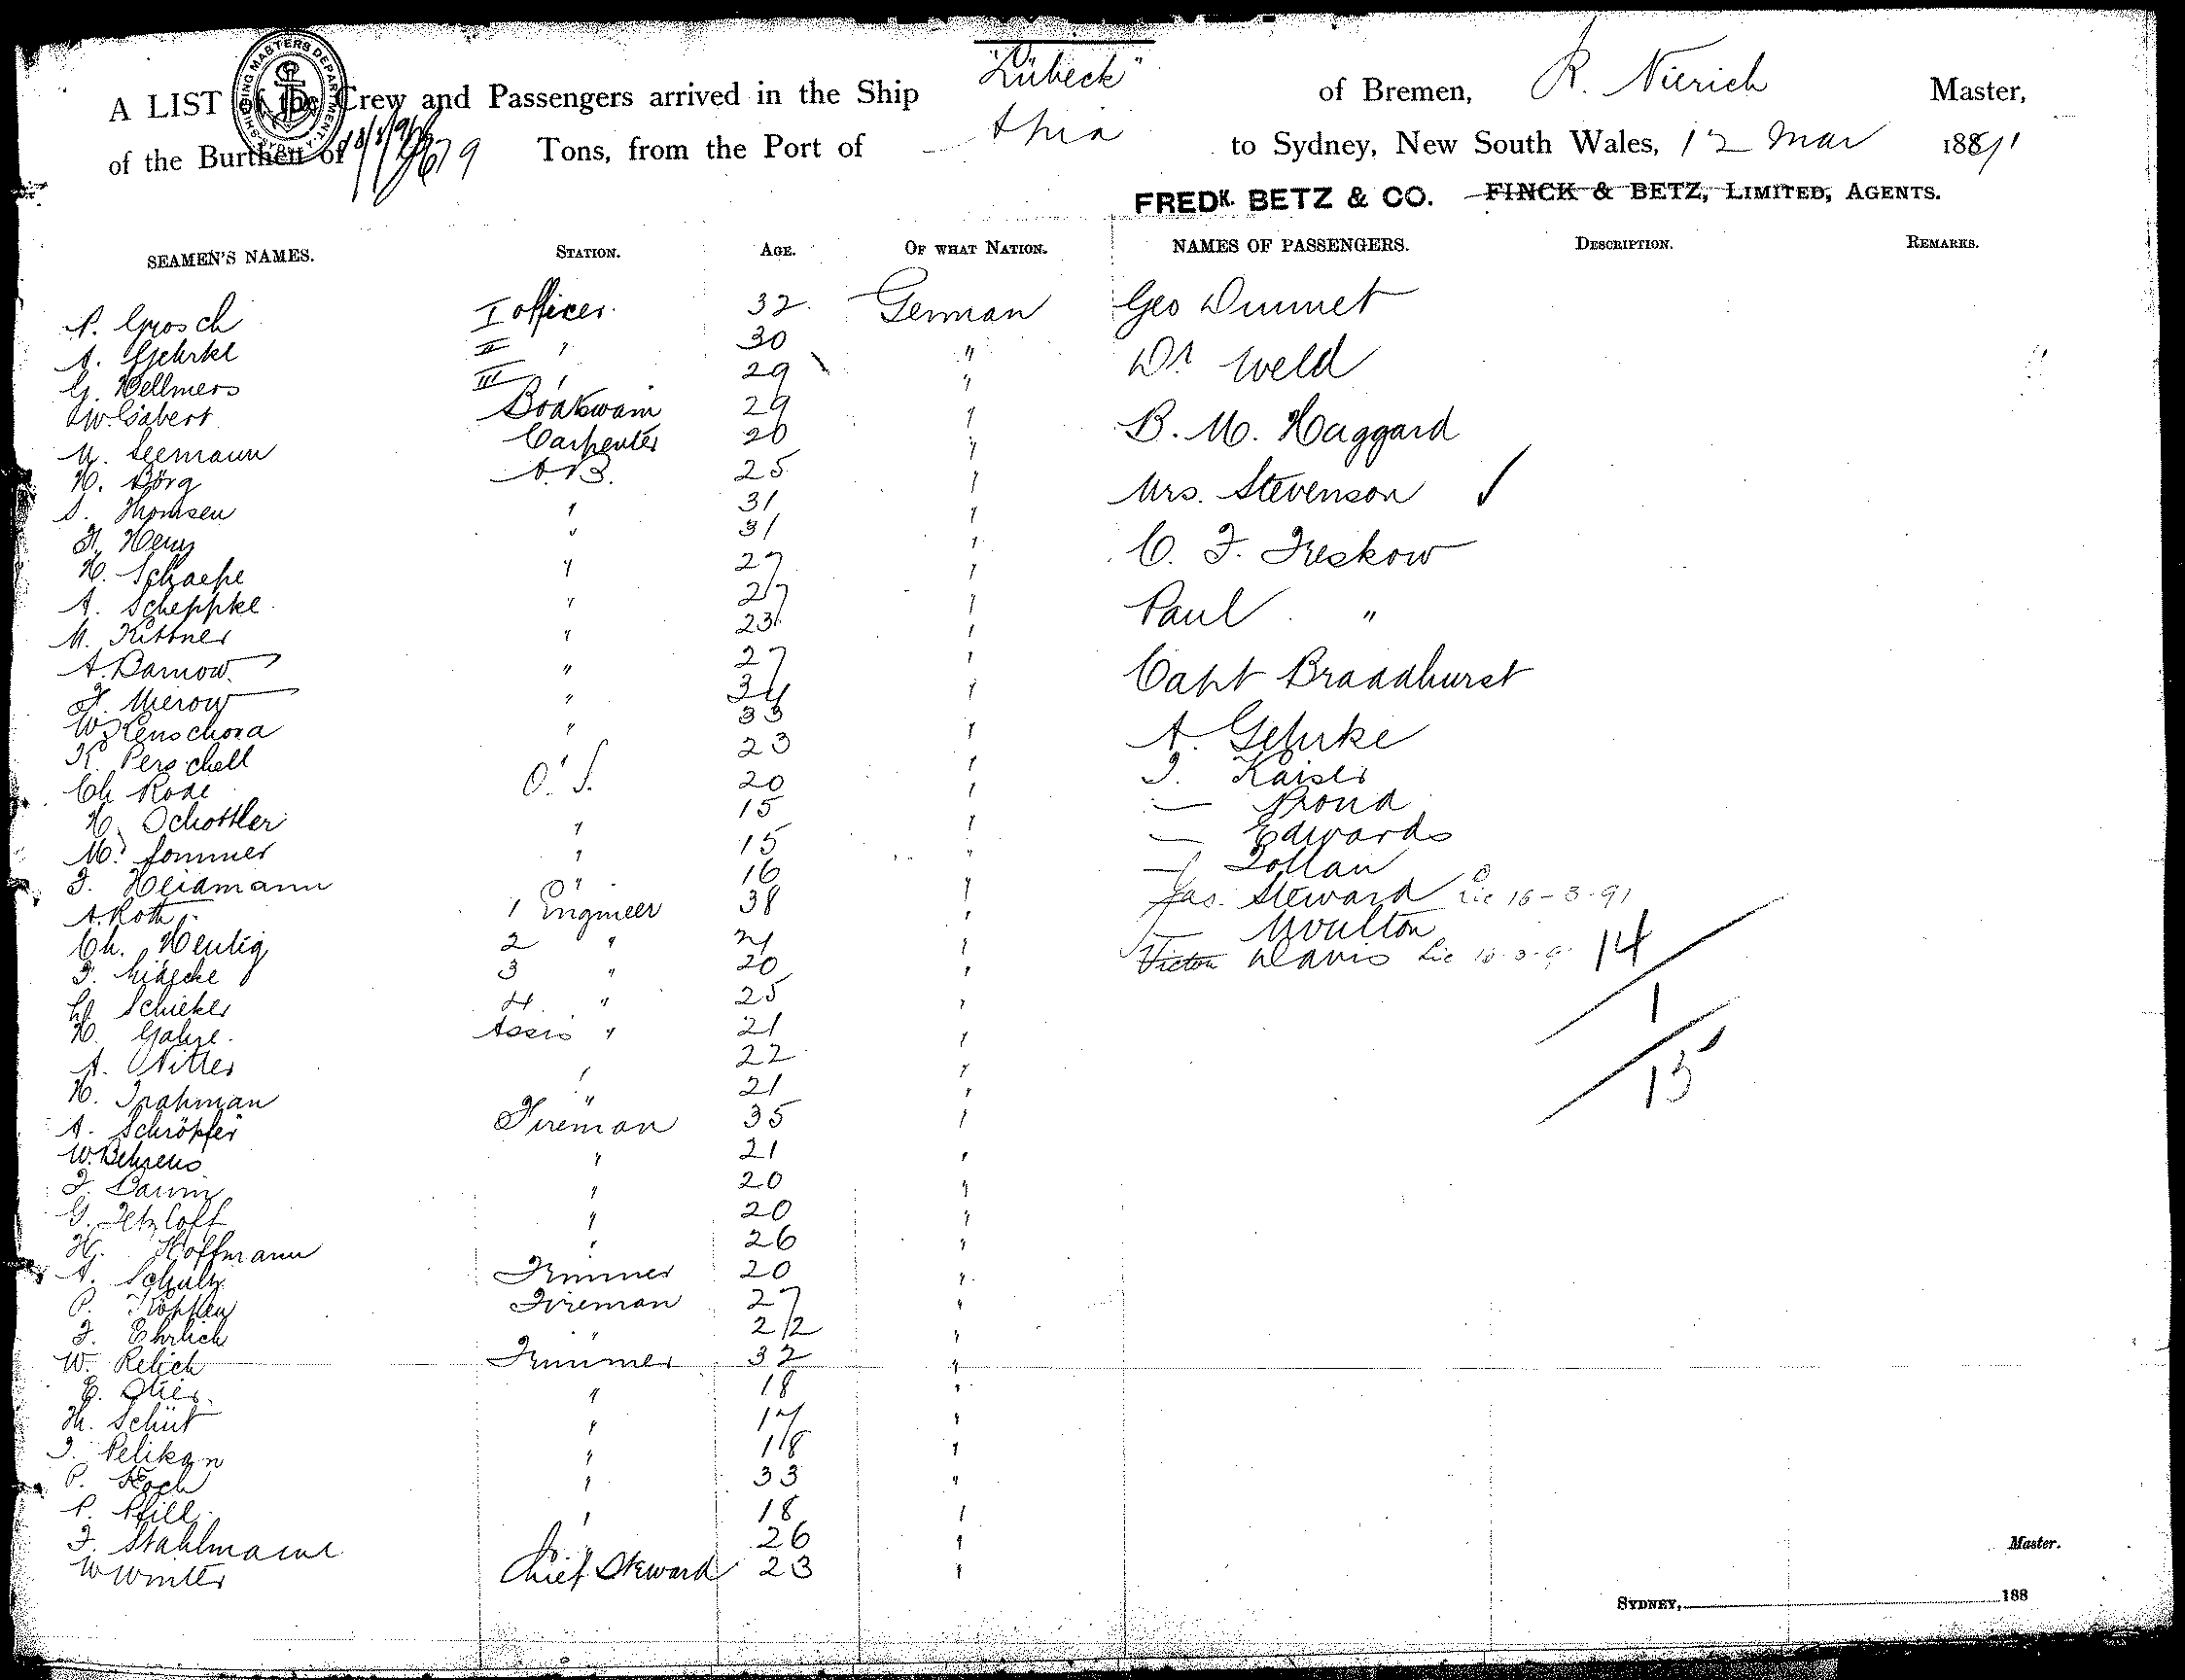 "Lübeck"
A LIST of the Crew and Passengers arrived in the Ship of Bremen, R. Nierich Master,
SHIPPING MASTERS DEPARTMENT. SYDNEY
of the Burthen of Tons, from the Port of Apia to Sydney, New South Wales, 12 Mar 1891
FREDK. BETZ & CO. FINCK & BETZ, LIMITED, AGENTS.
SEAMEN'S NAMES. STATION. AGE. OF WHAT NATION. NAMES OF PASSENGERS. DESCRIPTION. REMARKS.
P. Grosch I officer. 32 German Geo Dunnet
A. Gehrke II " 30 "
G. Hellmers III " 29 " Dr. Weld
W. Gabert Boatswain 29 "
M. Seemann Carpenter 20 " B. M. Haggard
H. Börg A.B. 25 "
S. Thomsen " 31 " Mrs. Stevenson ✓
" 31 "
H. Schaepe " 27 " C. F. Treskow
A. Scheppke " 27 "
M. Kittner " 23 " Paul "
A. Darnow " 27 "
F. Mierow " 34 " Capt Broadhurst
W. " 33 "
K. Perschell " 23 " A. Gehrke
Ch Rode O.S. 20 " J. Kaiser
H. Schottler " 15 " — Proud
M. Sommer " 15 " — Edwards
F. Heidmann " 16 " — Zollan
A. Roth 1 Engineer 38 " Jas. Steward Lic 16-3-91
Ch. Hentig 2 " " — Moulton
F. 3 " 20 " Victor Davis Lic 14
Schieker 4 " 25 " 1
H. Gahre. Assis " 21 "
A. Nitter " 22 " 15
H. Trahman " 21 "
A. Schröpfer Fireman 35 "
W. Behrens " 21 "
F. " 20 "
G. Tetzloff " 20 "
H. Hoffmann " 26 "
A. Schulz Trimmer 20 "
P. Köpplen Fireman 27 "
F. Ehrlich " 22 "
W. Relich Trimmer 32 "
E. " 18 "
H. Schüt " 17 "
J. Pelikan " 18 "
P. Koch " 33 "
P. Pfill " 18 "
F. Stahlmann " 26 "
W Winter Chief Steward 23 "
Master.
SYDNEY, 188